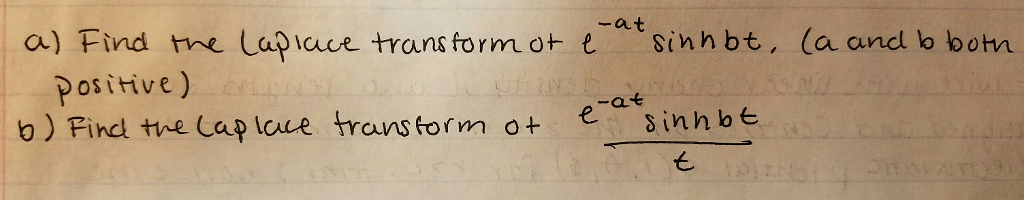 a) Find the Laplace transform of e^-at sinhbt, (a and b both
positive)
b) Find the Laplace transform of e^-at sinhbt
t